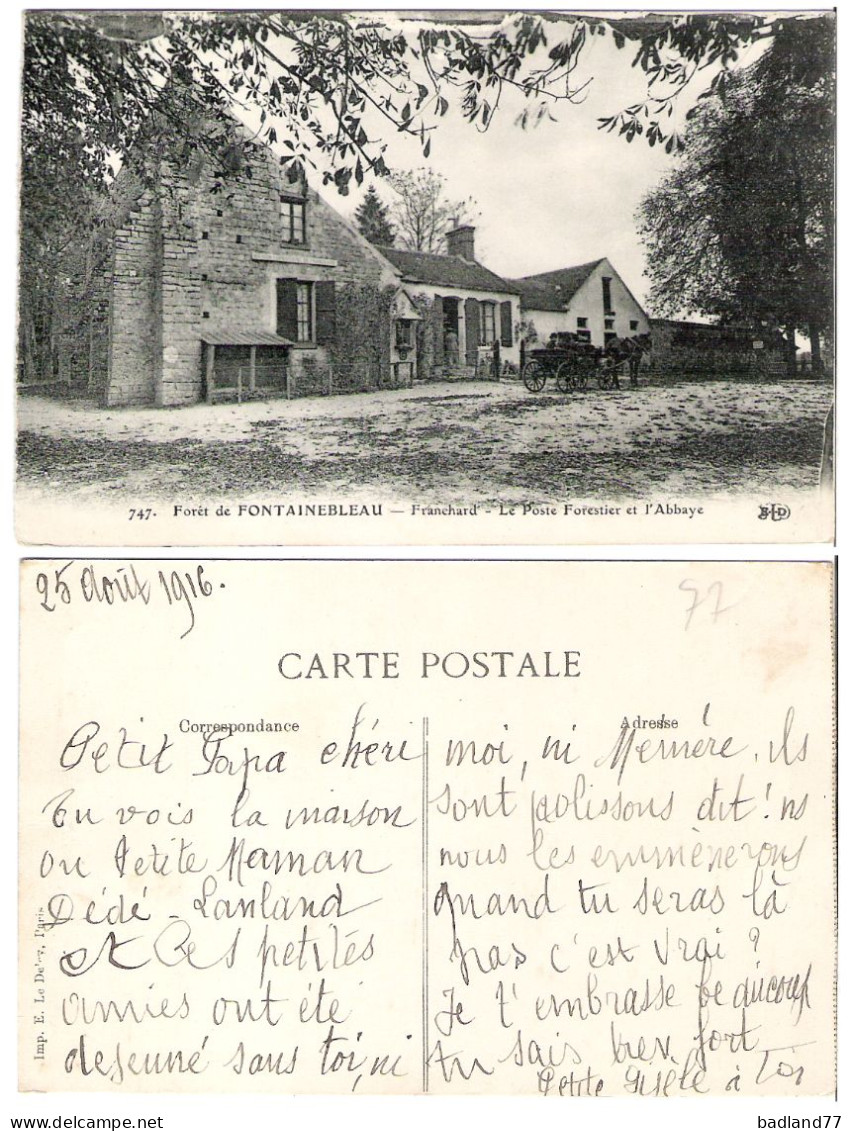 747. Forêt de FONTAINEBLEAU — Franchard - Le Poste Forestier et l'Abbaye
ELD
25 Août 1916.
77
CARTE POSTALE
Correspondance
Adresse
Petit Papa chéri
Tu vois la maison
ou Petite Maman
Dédé - Lanland
et Ces petités
amies ont été
dejeuné sans toi, ni
moi, ni Mémére. ils
sont polissons dit! ns
nous les emmènerons
quand tu seras là
pas c'est vrai ?
Je t'embrasse beaucoup
tu sais bien fort
Petite Gisèle à Toi
Imp. E. Le Deley, Paris
delcampe.net
badland77